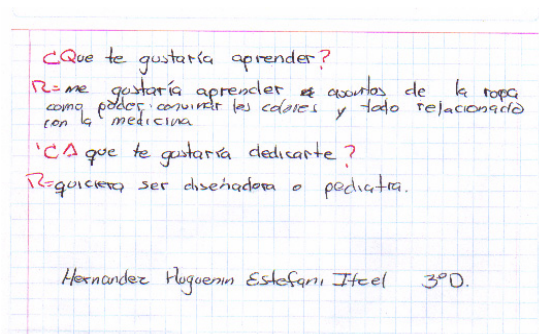 ¿Que te gustaría aprender?
R= me gustaría aprender asuntos de la ropa
como poder convinar los colores y todo relacionado
con la medicina
¿A que te gustaría dedicarte?
R= quiciera ser diseñadora o pediatra.
Hernandez Huguenin Estefani Itcel 3°D.